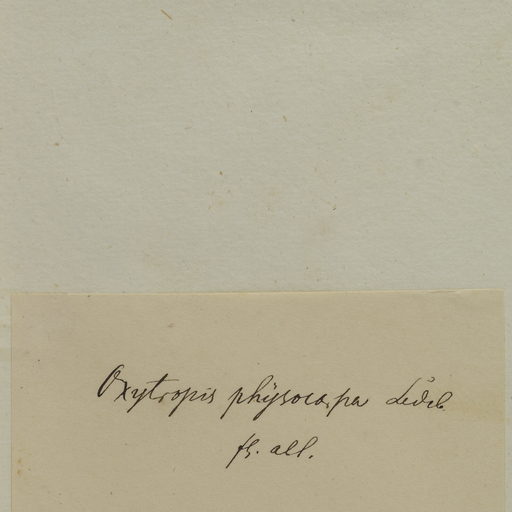 Oxytropis physocarpa Ledeb
fl. alt.